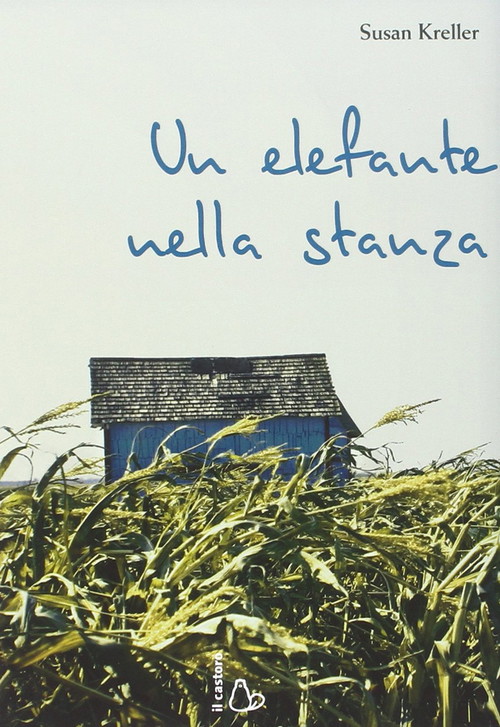 Susan Kreller
Un elefante
nella stanza
il castoro